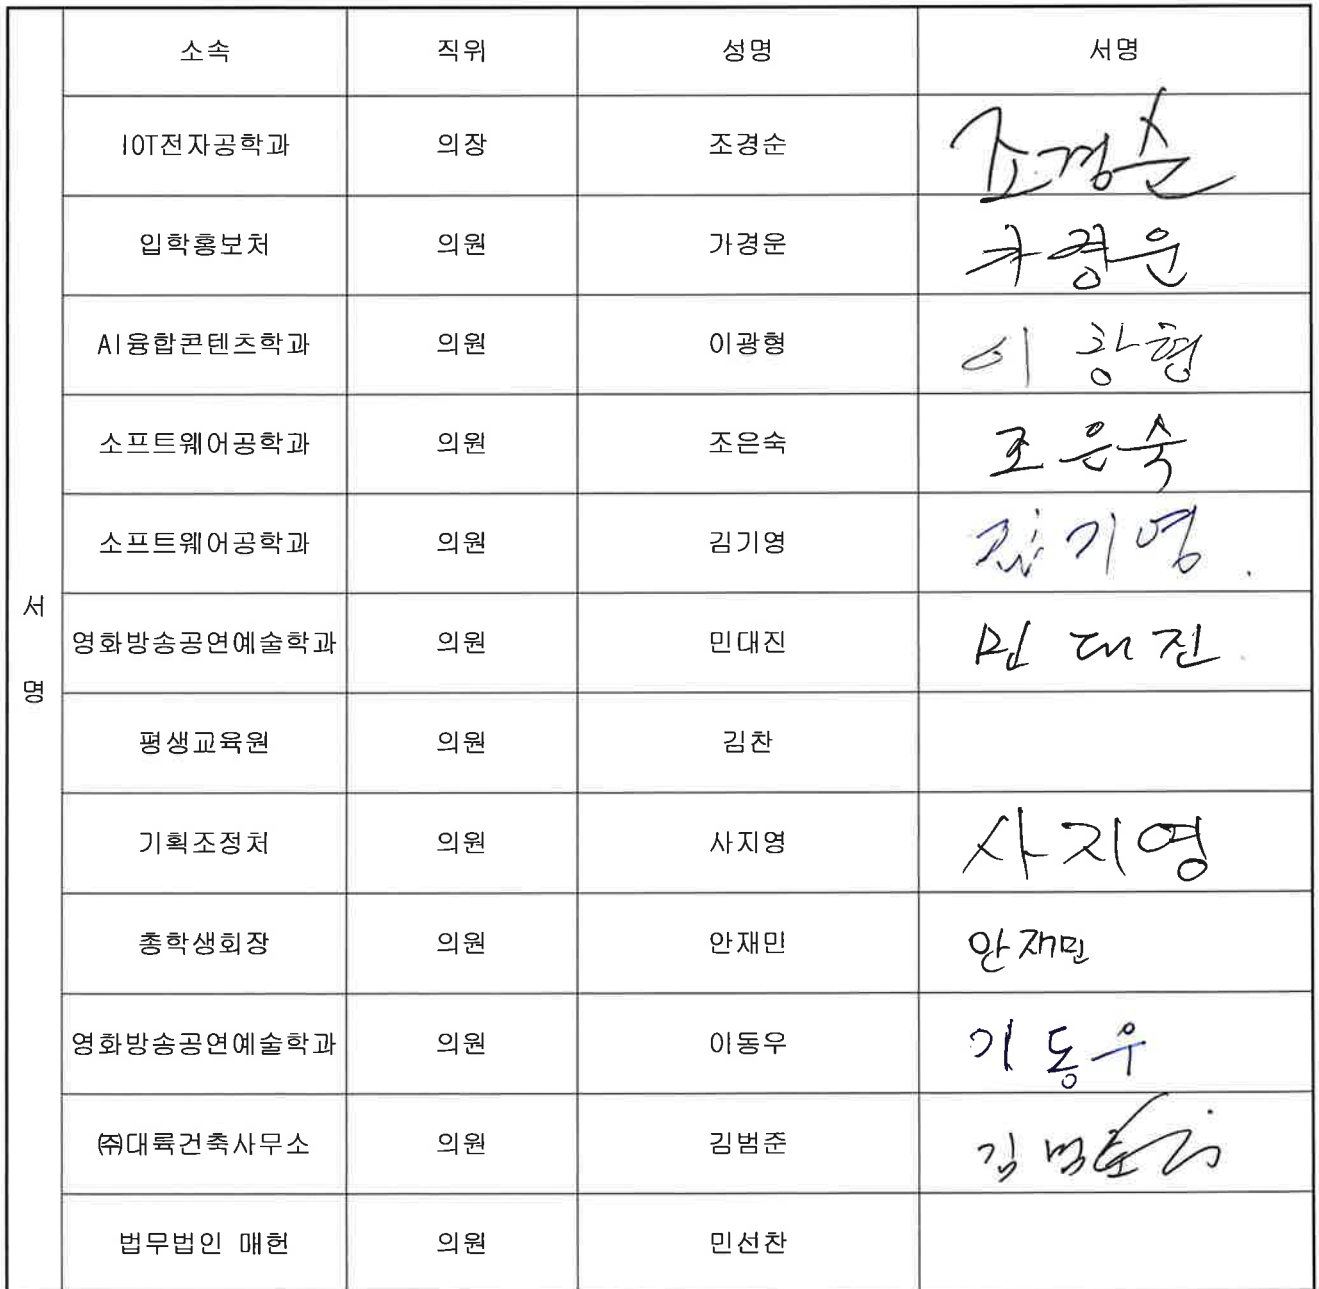 소속 직위 성명 서명
IOT전자공학과 의장 조경순 조경순
입학홍보처 의원 가경운 가경운
AI융합콘텐츠학과 의원 이광형 이광형
소프트웨어공학과 의원 조은숙 조은숙
소프트웨어공학과 의원 김기영 김기영
서
영화방송공연예술학과 의원 민대진 민대진
명
평생교육원 의원 김찬
기획조정처 의원 사지영 사지영
총학생회장 의원 안재민 안재민
영화방송공연예술학과 의원 이동우 이동우
㈜대륙건축사무소 의원 김범준 김범준
법무법인 매헌 의원 민선찬